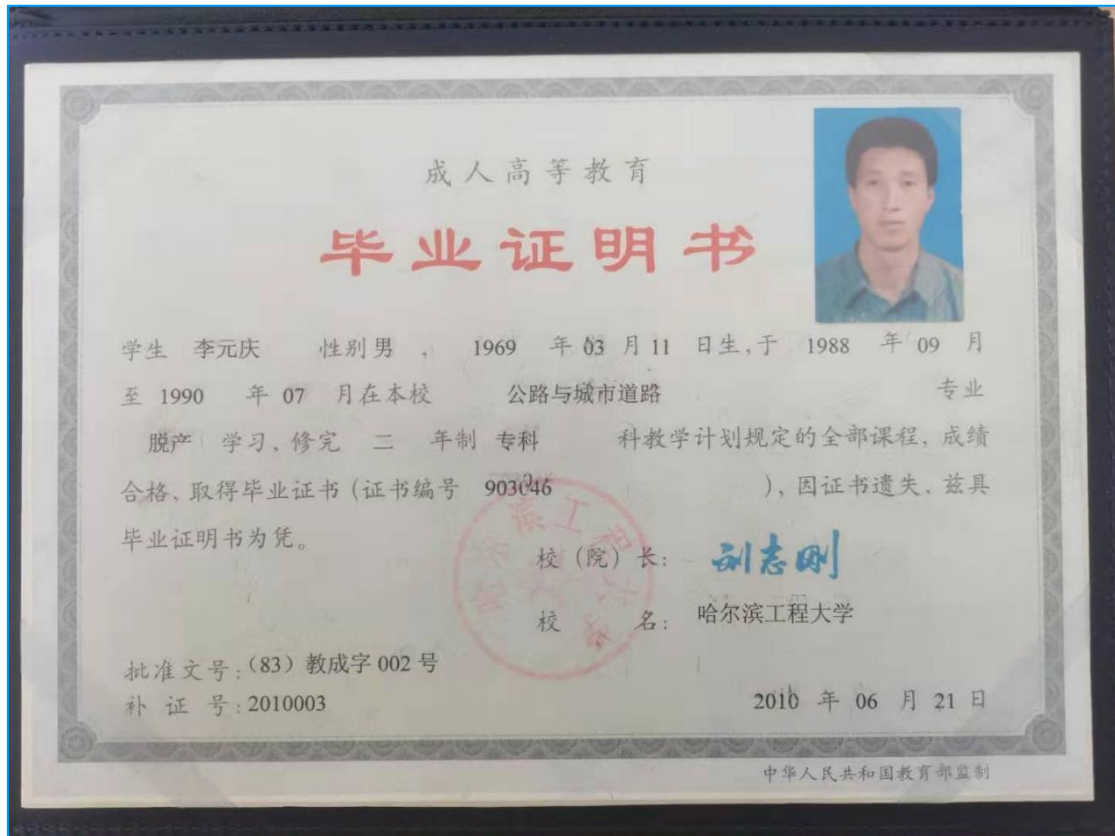 成人高等教育
毕业证明书
学生 李元庆 性别 男 , 1969 年 03 月 11 日生,于 1988 年 09 月
至 1990 年 07 月在本校 公路与城市道路 专业
脱产 学习,修完 二 年制 专科 科教学计划规定的全部课程,成绩
合格,取得毕业证书(证书编号 903046 ),因证书遗失,兹具
毕业证明书为凭。
校(院)长: 刘志刚
校 名: 哈尔滨工程大学
批准文号:(83)教成字 002 号
补 证 号:2010003
2010 年 06 月 21 日
中华人民共和国教育部监制